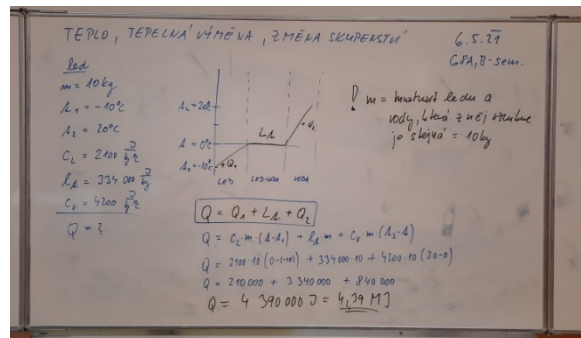 TEPLO, TEPELNÁ VÝMĚNA, ZMĚNA SKUPENSTVÍ
6.5.21
G8A, II-sem.
led
m = 10 kg
t₁ = -10°C
t₂ = 20°C
c_L = 2100 J/kg°C
l_t = 334 000 J/kg
c_v = 4200 J/kg°C
Q = ?
t₂ = 20°C
t = 0°C
t₁ = -10°C
Q₁
L_t
Q₂
LED
LED-VODA
VODA
! m = hmotnost ledu a
vody, která z něj vznikne
je stejná = 10kg
Q = Q₁ + L_t + Q₂
Q = c_L·m·(t-t₁) + l_t·m + c_v·m(t₂-t)
Q = 2100·10(0-(-10)) + 334000·10 + 4200·10(20-0)
Q = 210 000 + 3 340 000 + 840 000
Q = 4 390 000 J = 4,39 MJ